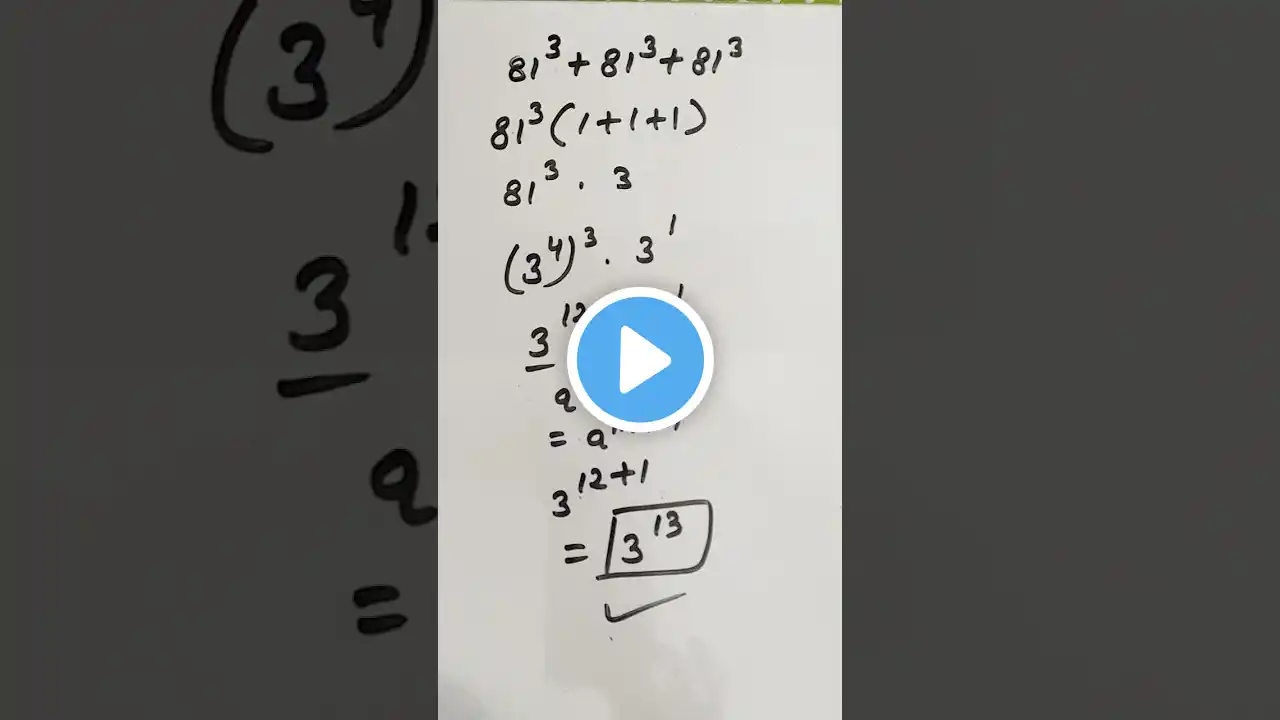 81³ + 81³ + 81³
81³(1+1+1)
81³ · 3
(3⁴)³ · 3¹
3¹²
a
= a
3¹²⁺¹
= 3¹³